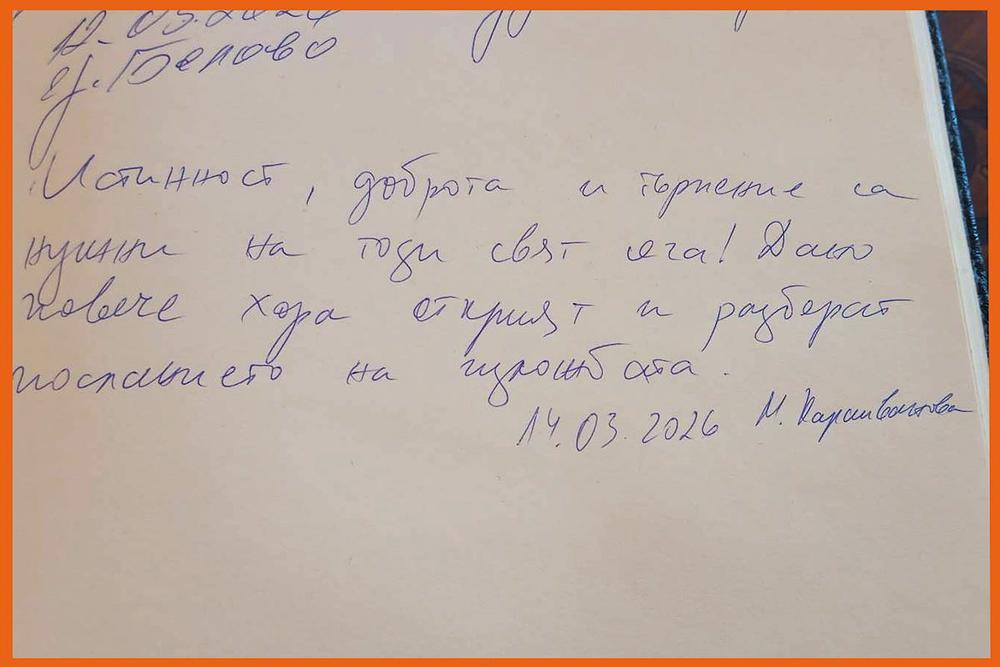 12.03.2026
гр. Белово
Истинност, доброта и търпение са
нужни на този свят сега! Дано
повече хора открият и разберат
посланието на изложбата.
14.03.2026 М. Караиванова